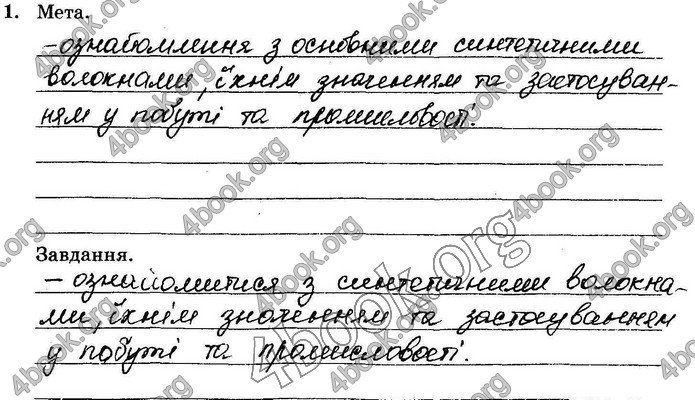 1. Мета.
- ознайомлення з основними синтетичними
волокнами, їхнім значенням та застосуван-
ням у побуті та промисловості.
Завдання.
- ознайомитися з синтетичними волокна-
ми, їхнім значенням та застосуванням
у побуті та промисловості.
4book.org